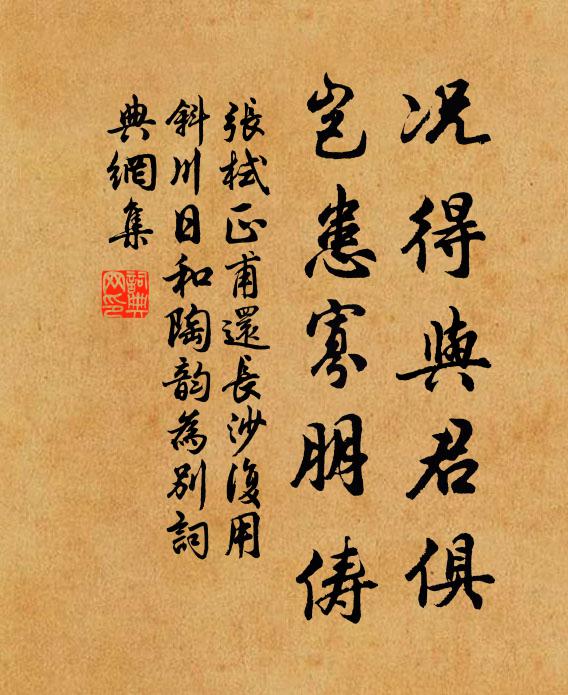 况得與君俱
豈患寡朋儔
張栻正甫還長沙復用
斜川日和陶韵為别詞
典網集
詞典網印